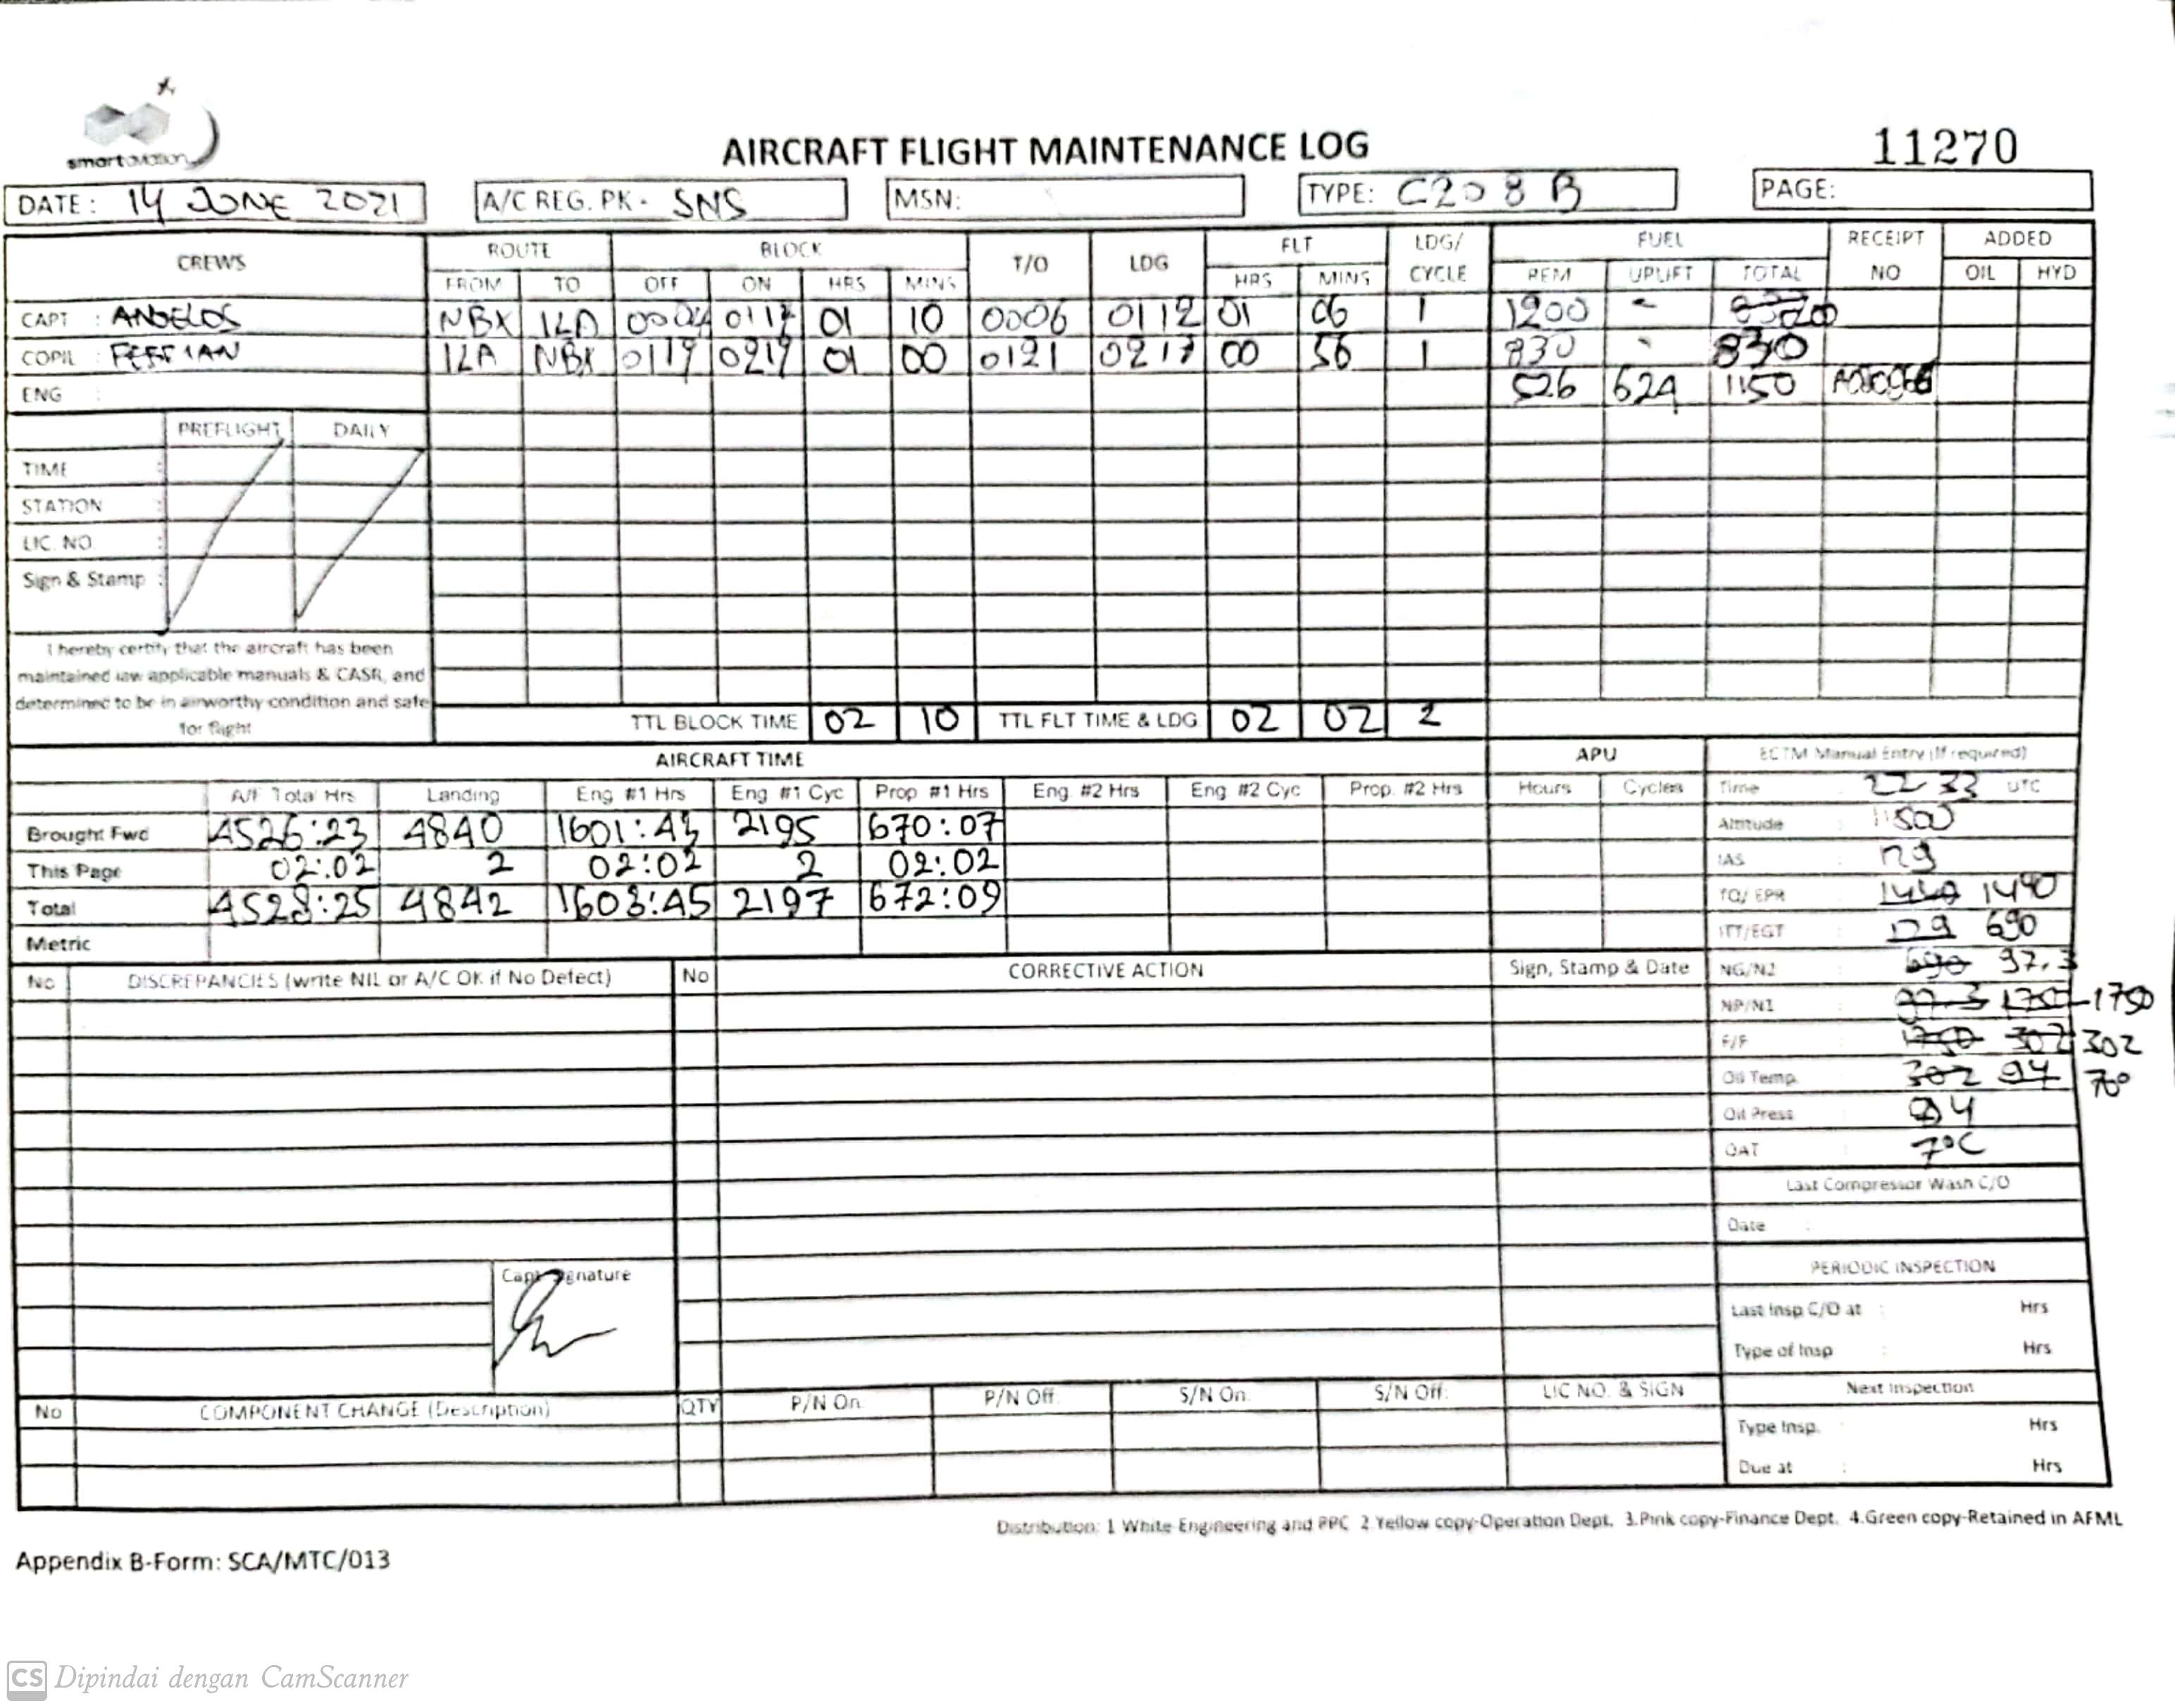 smart aviation
AIRCRAFT FLIGHT MAINTENANCE LOG
11270
DATE: 14 JUNE 2021 A/C REG. PK- SNS MSN: TYPE: C208B PAGE:
CREWS ROUTE BLOCK T/O LDG FLT LDG/ CYCLE FUEL RECEIPT NO ADDED
FROM TO OFF ON HRS MINS HRS MINS REM UPLIFT TOTAL OIL HYD
CAPT : ANGELOS NBX ILA 0004 0114 01 10 0006 0112 01 06 1 1200 -
COPIL : FEBRIAN ILA NBX 0119 0219 01 00 0121 0217 00 56 1 830 - 830
ENG : 526 624 1150
PREFLIGHT DAILY
TIME :
STATION :
LIC. NO :
Sign & Stamp :
I hereby certify that the aircraft has been
maintained iaw applicable manuals & CASR, and
determined to be in airworthy condition and safe
for flight
TTL BLOCK TIME 02 10 TTL FLT TIME & LDG 02 02 2
AIRCRAFT TIME APU ECTM Manual Entry (If required)
A/F Total Hrs Landing Eng #1 Hrs Eng #1 Cyc Prop #1 Hrs Eng #2 Hrs Eng #2 Cyc Prop. #2 Hrs Hours Cycles
Brought Fwd 4526:23 4840 1601:43 2195 670:07
This Page 02:02 2 02:02 2 02:02
Total 4528:25 4842 1603:45 2197 672:09
Metric
Time : 22 33 UTC
Altitude : 11500
IAS :
TQ/ EPR : 1440 1490
ITT/EGT : 129 690
NG/N2 : 690 97.3
NP/N1 : 97.3 1750 1750
F/F : 1750 302 302
Oil Temp. : 302 94 70°
Oil Press : 94
OAT : 7°C
Last Compressor Wash C/O
Date :
PERIODIC INSPECTION
Last Insp C/O at : Hrs
Type of Insp : Hrs
Next Inspection
Type Insp. : Hrs
Due at : Hrs
No DISCREPANCIES (write NIL or A/C OK if No Defect) No CORRECTIVE ACTION Sign, Stamp & Date
Capt Signature
No COMPONENT CHANGE (Description) QTY P/N On P/N Off S/N On S/N Off LIC NO. & SIGN
Distribution: 1 White Engineering and PPC 2.Yellow copy-Operation Dept. 3.Pink copy-Finance Dept. 4.Green copy-Retained in AFML
Appendix B-Form: SCA/MTC/013
CS Dipindai dengan CamScanner